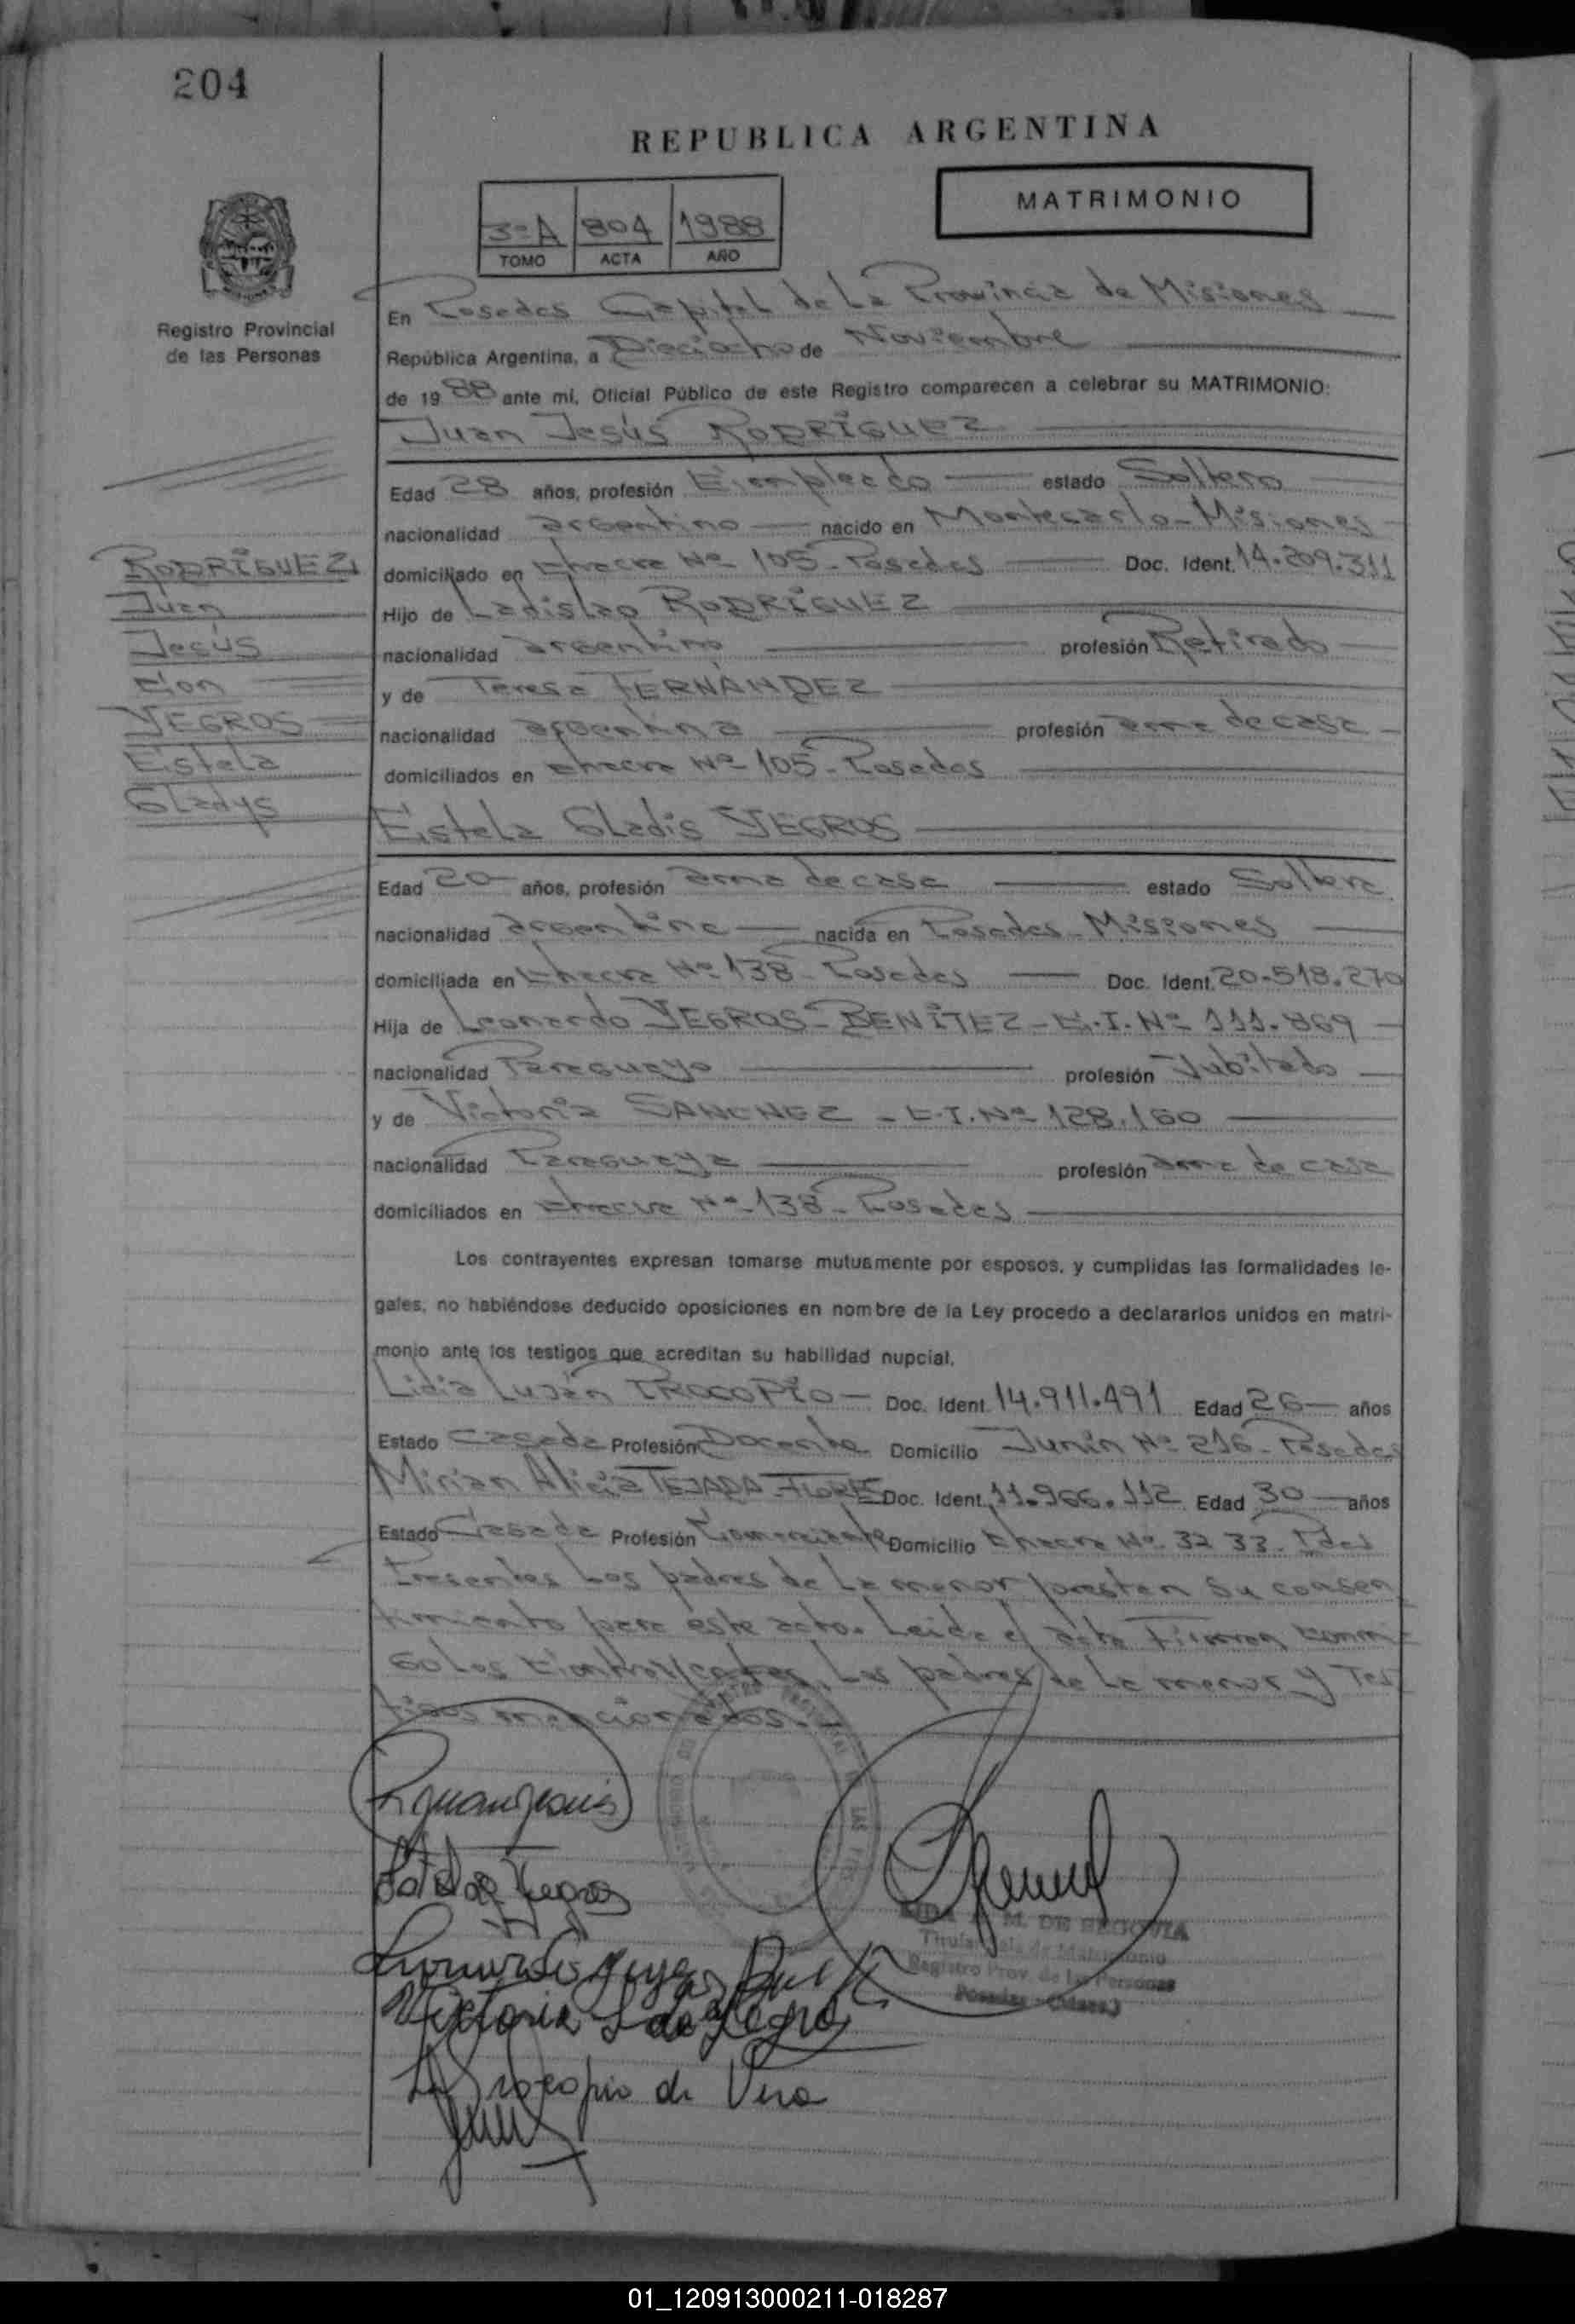 204
REPUBLICA ARGENTINA
MATRIMONIO
3º A 804 1988
TOMO ACTA AÑO
Registro Provincial
de las Personas
En Posadas Capital de La Provincia de Misiones
República Argentina, a Dieciocho de Noviembre
de 1988 ante mi, Oficial Público de este Registro comparecen a celebrar su MATRIMONIO:
Juan Jesús RODRÍGUEZ
Edad 28 años, profesión Empleado estado Soltero
nacionalidad argentino nacido en Montecarlo - Misiones
domiciliado en Chacra Nº 105 - Posadas Doc. Ident. 14.209.311
Hijo de Ladislao RODRÍGUEZ
nacionalidad argentino profesión Retirado
y de Teresa FERNÁNDEZ
nacionalidad argentina profesión ama de casa
domiciliados en Chacra Nº 105 - Posadas
RODRÍGUEZ,
Juan
Jesús
con
YEGROS
Estela
Gladys
Estela Gladis YEGROS
Edad 20 años, profesión ama de casa estado Soltera
nacionalidad argentina nacida en Posadas - Misiones
domiciliada en Chacra Nº 138 - Posadas Doc. Ident. 20.518.270
Hija de Leonardo YEGROS - BENÍTEZ - C.I. Nº 111.869
nacionalidad Paraguayo profesión Jubilado
y de Victoria SANCHEZ - C.I. Nº 128.160
nacionalidad Paraguaya profesión ama de casa
domiciliados en Chacra Nº 138 - Posadas
Los contrayentes expresan tomarse mutuamente por esposos, y cumplidas las formalidades le-
gales, no habiéndose deducido oposiciones en nombre de la Ley procedo a declararlos unidos en matri-
monio ante los testigos que acreditan su habilidad nupcial,
Lidia Luján PROCOPIO Doc. Ident. 14.911.491 Edad 26 años
Estado Casada Profesión Docente Domicilio Junín Nº 216 - Posadas
Mirian Alicia TEJADA - FLORES Doc. Ident. 11.966.112 Edad 30 años
Estado Casada Profesión Comerciante Domicilio Chacra Nº 32 33 - Pdas
Presentes Los padres de La menor prestan su consen
timiento para este acto. Leida el acta Firman conmi
go Los Contrayentes, Los padres de La menor y Tes
tigos mencionados.
Juan Jesus
Estela G. Yegros
Victoria S de Yegros
M. DE SEGOVIA
Titular Sala de Matrimonio
Registro Prov. de las Personas
Posadas - (Mnes.)
L. Procopio de Vera
01_120913000211-018287